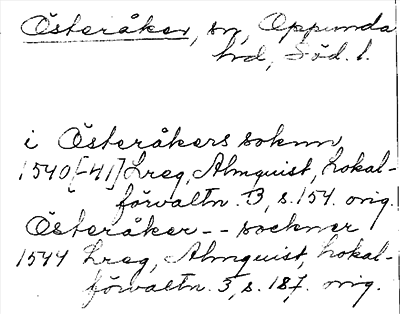 Österåker, sn, Oppunda
hrd, Söd. l.
i Österåkers soknn
1540[-41] Lreg, Almquist, Lokal-
förvaltn. 3, s. 154. orig.
Österåker -- sockner
1544 Lreg, Almquist, Lokal-
förvaltn. 3, s. 187. orig.